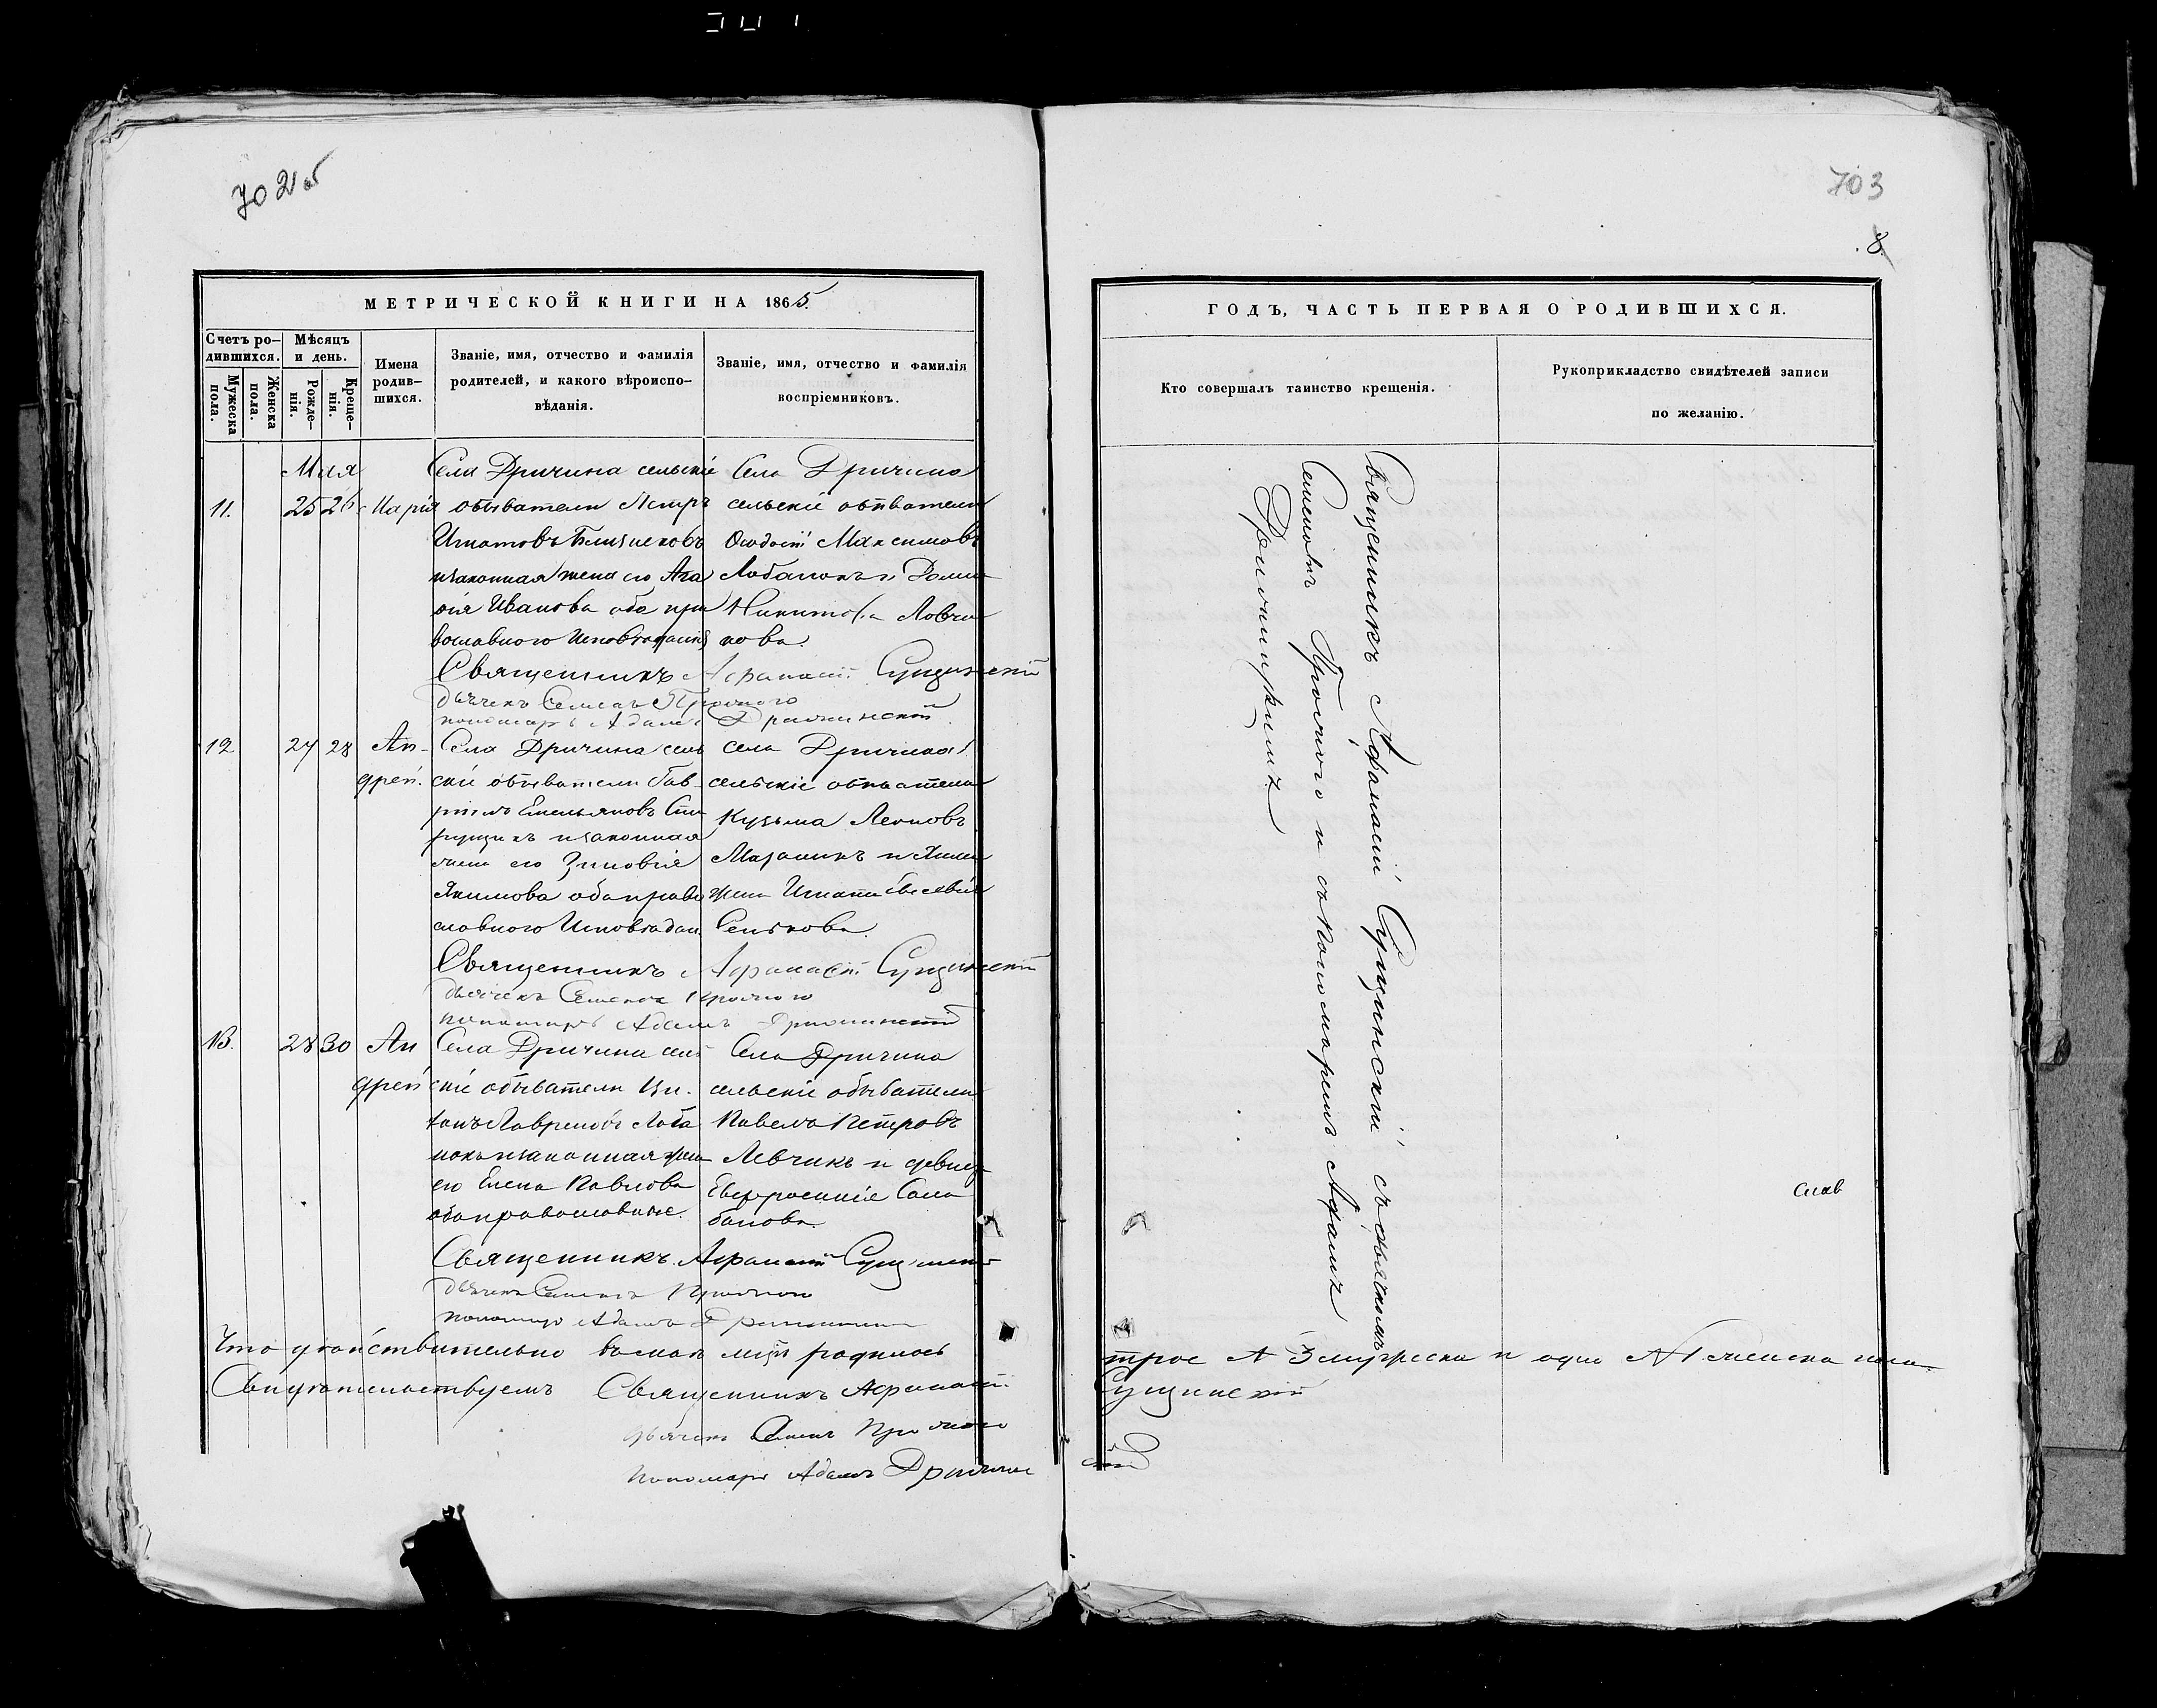 702 об
703
8
МЕТРИЧЕСКОЙ КНИГИ НА 1865
Счетъ ро-
дившихся.
Мѣсяцъ
и день.
Мужеска
пола.
Женска
пола.
Рожде-
нія.
Креще-
нія.
Имена
родив-
шихся.
Званіе, имя, отчество и фамилія
родителей, и какого вѣроиспо-
вѣданія.
Званіе, имя, отчество и фамилія
воспріемниковъ.
Мая
11.
25 26
Марія
Села Дричина сельскіе
обыватели Петръ
Игнатовъ Близнековъ
и законная жена его Ага
ѳія Иванова оба пра
вославного Исповѣданія
Села Дричина
сельскіе обыватели
Ѳеодосій Максимовъ
Лобанокъ и
Никитова
кова.
Священникъ Афанасій Сущинскій
дьячекъ Семенъ Прочного
пономарь Адамъ
12
27 28
Ан-
дрей.
Села Дричина сель
скіе обыватели Гав-
ріилъ Емельяновъ
и законная
жена его Зиновія
Якимова оба право
славного Исповѣдан.
села Дричина
сельскіе обыватели
Кузьма Леоновъ
Мазаникъ и
Сенькова
Священникъ Афанасій Сущинскій
дьячекъ Семенъ Прочного
пономарь Адамъ
13.
28 30
Ан
дрей
Села Дричина сель
скіе обыватели
Лавреновъ Лоба
нокъ и законная жена
его Елена Павлова
оба православные.
Села Дричина
сельскіе обыватели
Павелъ Петровъ
Левчикъ и девица
Евфросинія Сала
банова
Священникъ Афанасій Сущинскій
дьячекъ Семенъ Прочного
пономарь Адамъ
Что дѣйствительно въ маѣ мцѣ родилось
Свидѣтельствуемъ Священникъ Афанасій
дьячекъ Семенъ Прочного
пономарь Адамъ
ГОДЪ, ЧАСТЬ ПЕРВАЯ О РОДИВШИХСЯ.
Кто совершалъ таинство крещенія.
Рукоприкладство свидѣтелей записи
по желанію.
Священникъ Афанасій Сущинскій съ дьячкомъ
Семеномъ Прочного и съ пономаремъ Адамъ
трое № 3 мужеска и одно № 1 женска пола
Сущинскій
скій